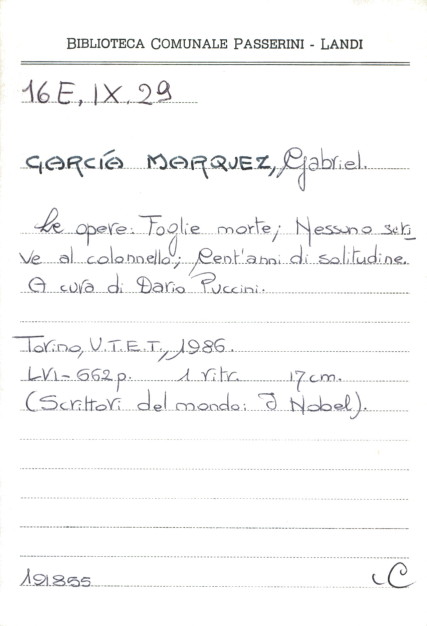 BIBLIOTECA COMUNALE PASSERINI - LANDI
16E, IX. 29
GARCÍA MARQUEZ, Gabriel.
Le opere: Foglie morte; Nessuno scri
ve al colonnello; Cent'anni di solitudine.
A cura di Dario Puccini.
Torino, U.T.E.T., 1986.
LVI - 662 p. 1 ritr. 17 cm.
(Scrittori del mondo: I Nobel).
191855
C